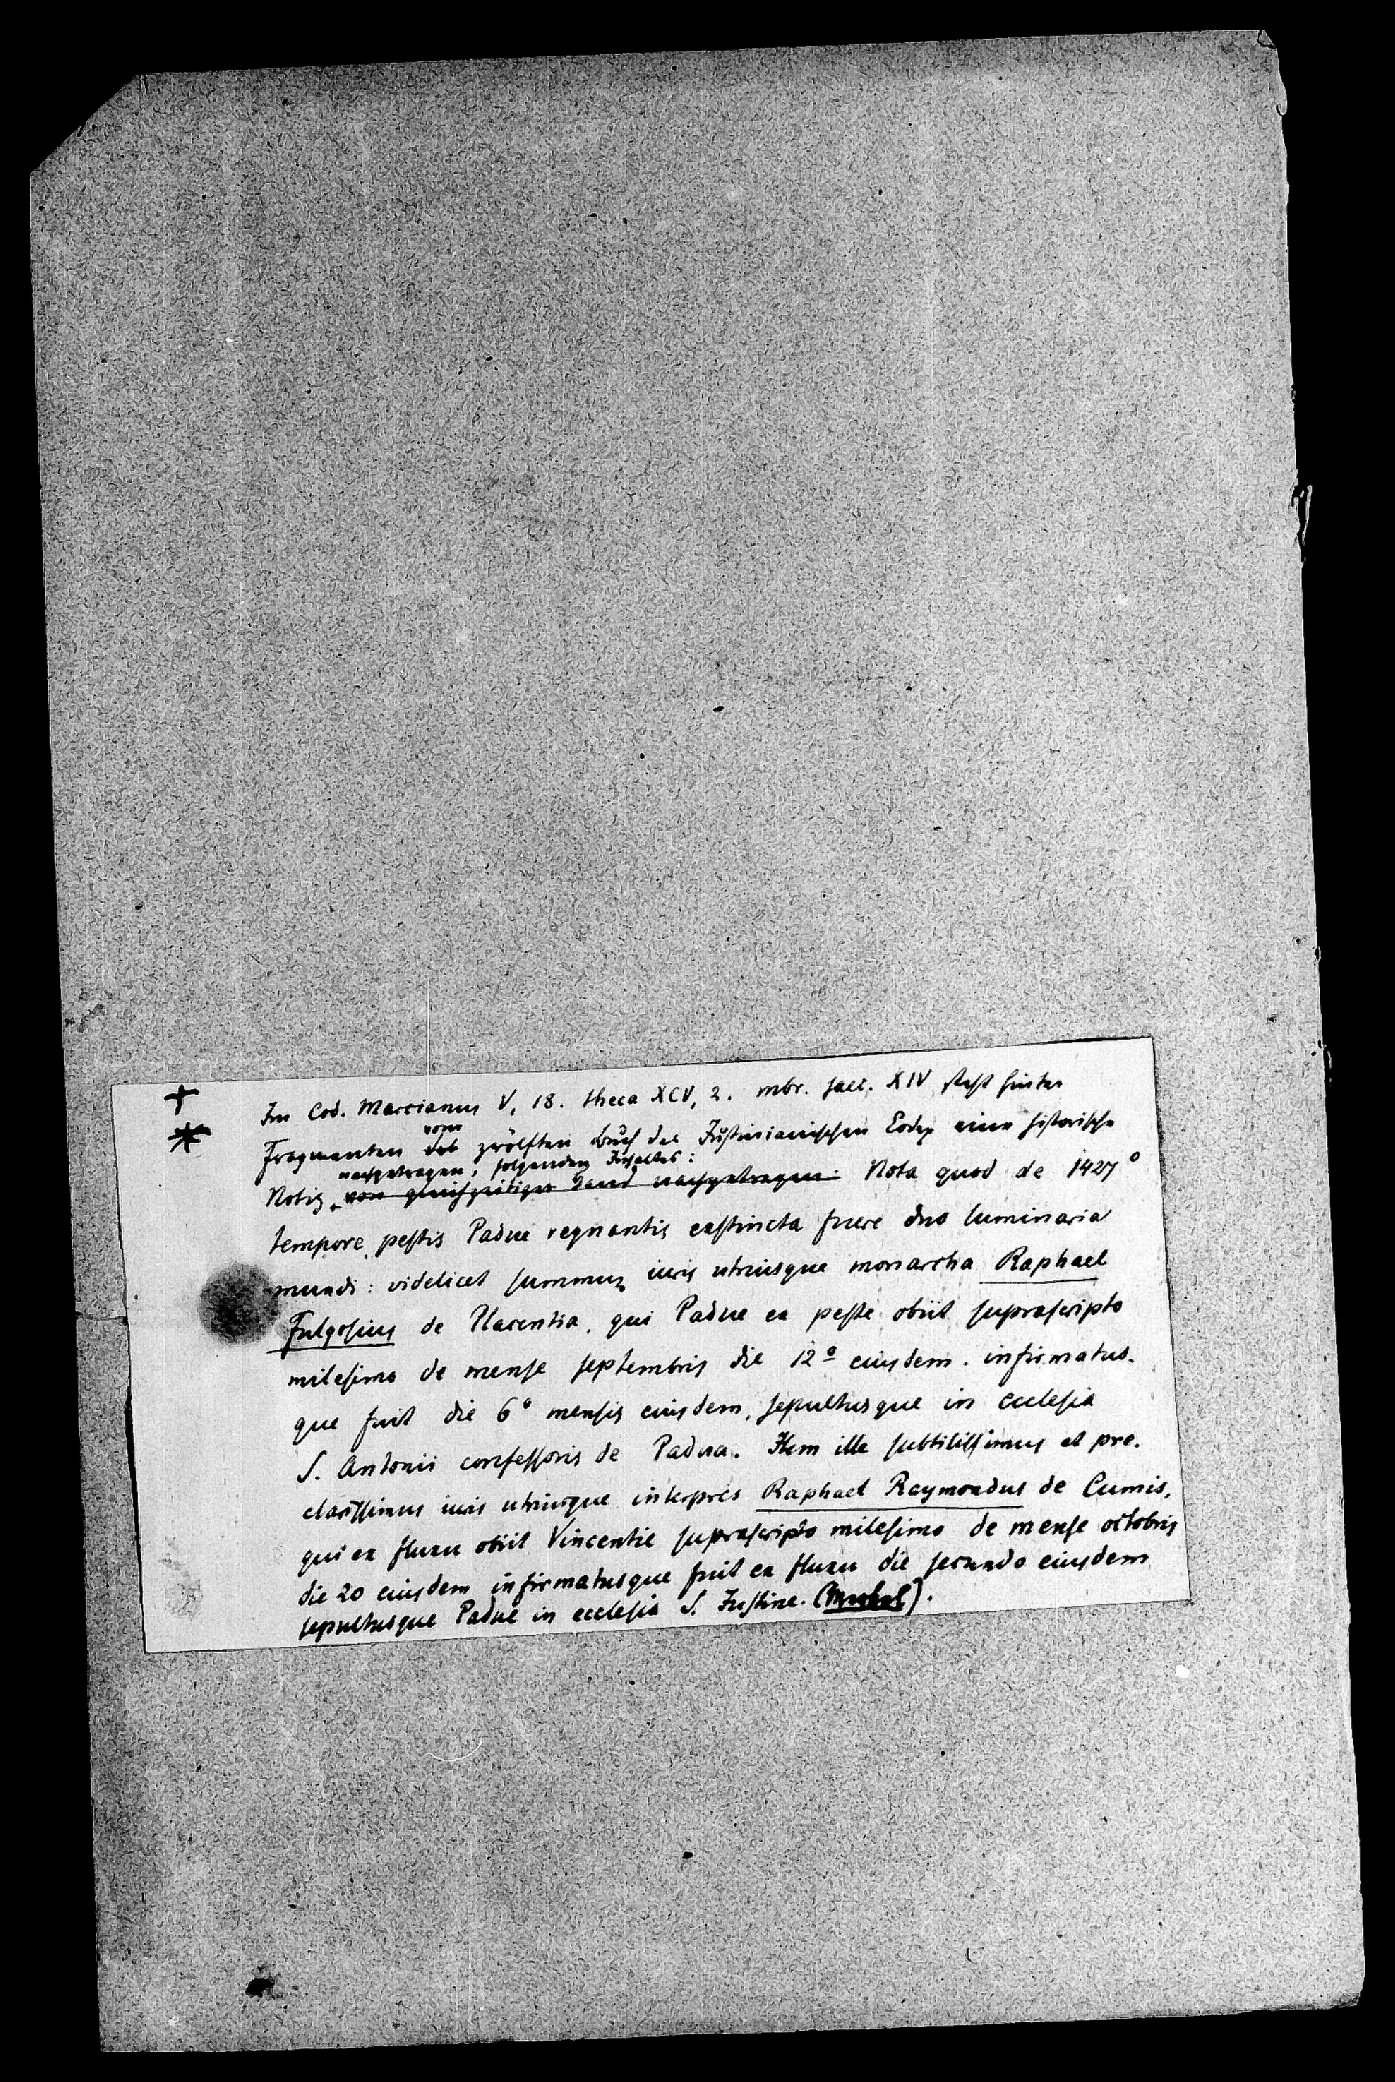 Im Cod. Marcianus V, 18. theca XCV, 2. mbr. saec. XIV steht hinter
Fragmenten des vom zwölften Buch des Justinianischen Codex eine historische
nachgetragen, folgenden Inhaltes:
Notiz, von gleichzeitiger Hand nachgetragen. Nota quod de 1427º
tempore pestis Padue regnantis exstincta fuere duo luminaria
mundi: videlicet summus iuris utriusque monarcha Raphael
Fulgosius de Placentia, qui Padue ex peste obiit suprascripto
milesimo de mense septembris die 12º eiusdem. infirmatus-
que fuit die 6º mensis eiusdem, sepultusque in ecclesia
S. Antonii confessoris de Padua. Item ille subtilissimus et pre-
clarissimus iuris utriusque interpres Raphael Raymondus de Cumis,
qui ex fluxu obiit Vincentie suprascripto milesimo de mense octobris
die 20 eiusdem infirmatusque fuit ex fluxu die secundo eiusdem
sepultusque Padue in ecclesia S. Justine.